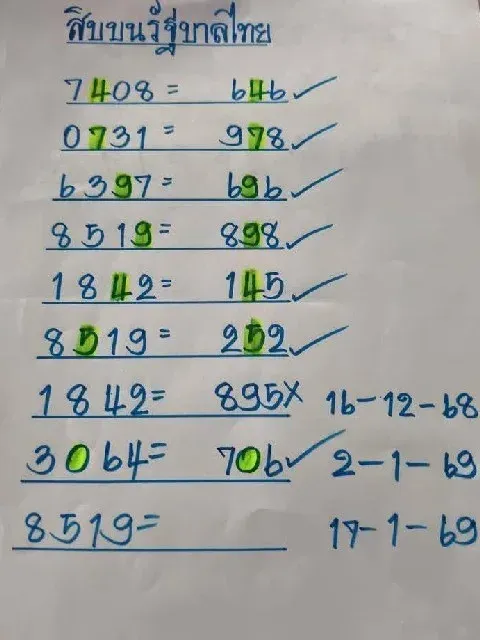 สิบบนรัฐบาลไทย
7408 = 646 ✓
0731 = 978 ✓
6397 = 696 ✓
8519 = 898 ✓
1842 = 145 ✓
8519 = 252 ✓
1842 = 895 X 16-12-68
3064 = 706 ✓ 2-1-69
8519 = 17-1-69